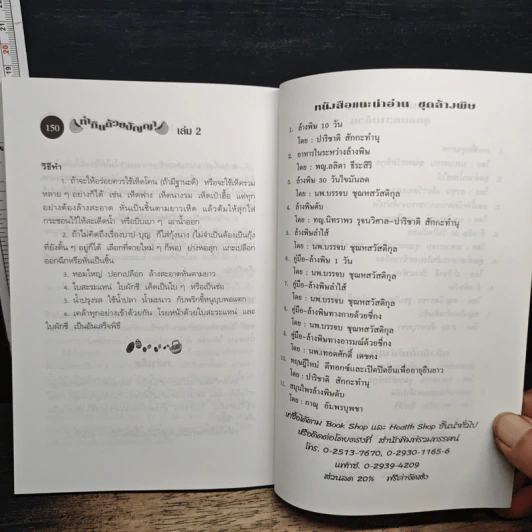 150 ทำกินด้วยปัญญา เล่ม 2
วิธีทำ
1. ถ้าจะให้อร่อยควรใช้เห็ดโคน (ถ้ามีฐานะดี) หรือจะใช้เห็ดรวม
หลาย ๆ อย่างก็ได้ เช่น เห็ดฟาง เห็ดนางรม เห็ดเป๋าฮื้อ แต่ทุก
อย่างต้องล้างสะอาด หั่นเป็นชิ้นตามยาวเท่า แล้วต้มให้สุกใส่
กระชอนไว้ให้สะเด็ดน้ำ หรือบีบเบา ๆ เอาน้ำออก
2. ถ้าไม่คิดถึงเรื่องบาป-บุญ ก็ใส่กุ้งนาง (ไม่จำเป็นต้องเป็นกุ้ง
ที่ยังดิ้น ๆ อยู่ก็ได้ เลือกที่ตายใหม่ ๆ ก็พอ) ปรุงพอสุก แกะเปลือก
ออกฉีกหรือหั่นเป็นชิ้น
3. หอมใหญ่ ปอกเปลือก ล้างสะอาดหั่นตามยาว
4. ใบสะระแหน่ ใบผักชี เด็ดเป็นใบ ๆ หรือเป็นช่อ
5. น้ำปรุงรส ใช้น้ำปลา น้ำมะนาว กับพริกขี้หนูบุบพอแตก
6. เคล้าทุกอย่างเข้าด้วยกัน โรยหน้าด้วยใบสะระแหน่ และ
ใบผักชี เป็นอันเสร็จพิธี
หนังสือแนะนำอ่าน ชุดล้างพิษ
1. ล้างพิษ 10 วัน
โดย : ปาริชาติ สักกะทำนุ
2. อาหารในระหว่างล้างพิษ
โดย : พญ.ลลิตา ธีระสิริ
3. ล้างพิษ 30 วันไขมันลด
โดย : นพ.บรรจบ ชุณหสวัสดิกุล
4. ล้างพิษตับ
โดย : ทญ.นิทราพร รุจนวิศาล-ปาริชาติ สักกะทำนุ
5. ล้างพิษลำไส้
โดย : นพ.บรรจบ ชุณหสวัสดิกุล
6. คู่มือ-ล้างพิษ 1 วัน
โดย : นพ.บรรจบ ชุณหสวัสดิกุล
7. คู่มือ-ล้างพิษลำไส้
โดย : นพ.บรรจบ ชุณหสวัสดิกุล
8. คู่มือ-ล้างพิษทางกายด้วยชี่กง
โดย : นพ.บรรจบ ชุณหสวัสดิกุล
9. คู่มือ-ล้างพิษทางอารมณ์ด้วยชี่กง
โดย : นพ.เทอดศักดิ์ เดชคง
10. ทฤษฎีใหม่ ดีทอกซ์และเป็ดปัดยืนเพื่ออายุยืนยาว
โดย : ปาริชาติ สักกะทำนุ
11. สมุนไพรล้างพิษตับ
โดย : ภาณุ อัมพรบุพชา
หาซื้อได้ตาม Book Shop และ Health Shop ชั้นนำทั่วไป
หรือติดต่อโดยตรงที่ สำนักพิมพ์รวมทรรศน์
โทร. 0-2513-7670, 0-2930-1165-6
แฟกซ์. 0-2939-4209
ส่วนลด 20% ฟรีค่าจัดส่ง